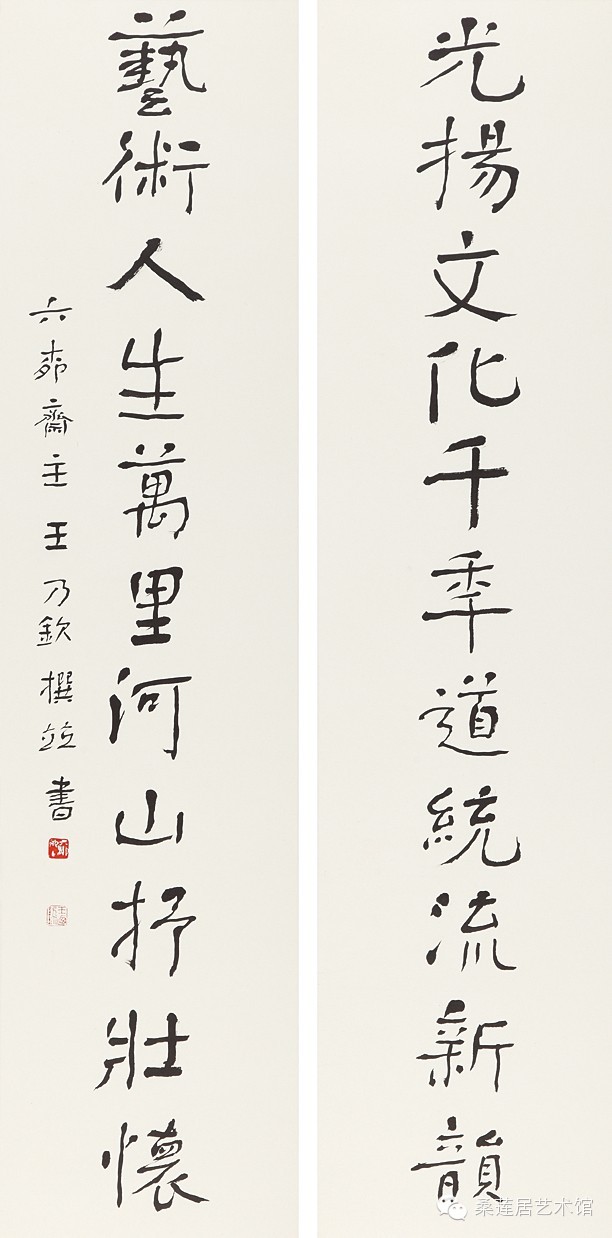 光揚文化千季道統流新韻
藝術人生萬里河山抒壯懷
齋主王乃欽撰並書
桑莲居艺术馆